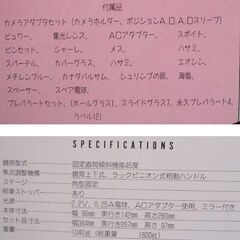 付属品
カメラアダプタセット(カメラホルダー、ポジションA,D,A,Dスリーブ)
ビュワー、 集光レンズ、 ACアダプター、 スポイト、
ピンセット、 シャーレ、 メス、 ハサミ、
スパーテル、 カバーグラス、 ハサミ、 エオシン、
メチレンブルー、 カナダバルサム、 シュリンプの卵、 海塩、
スペーサー、 スペア電球、
プレパラートセット、(ホールグラス1、スライドグラス7、永久プレパラート4、
ラベル12)
SPECIFICATIONS
鏡筒型式 :固定直筒傾斜機能45度
焦点調整機構 :鏡筒上下式、ラックピニオン式粗動ハンドル
ステージ :角型固定
粗準ストッパー :あり
光源 :2.2V、0.25A電球、ACアダプター使用、ミラー付き
大きさ :幅 90mm 奥行き142mm 高さ260mm
セット寸法 :幅384mm 奥行き267mm 高さ 97mm
重量 :1040g (総重量 1600g)